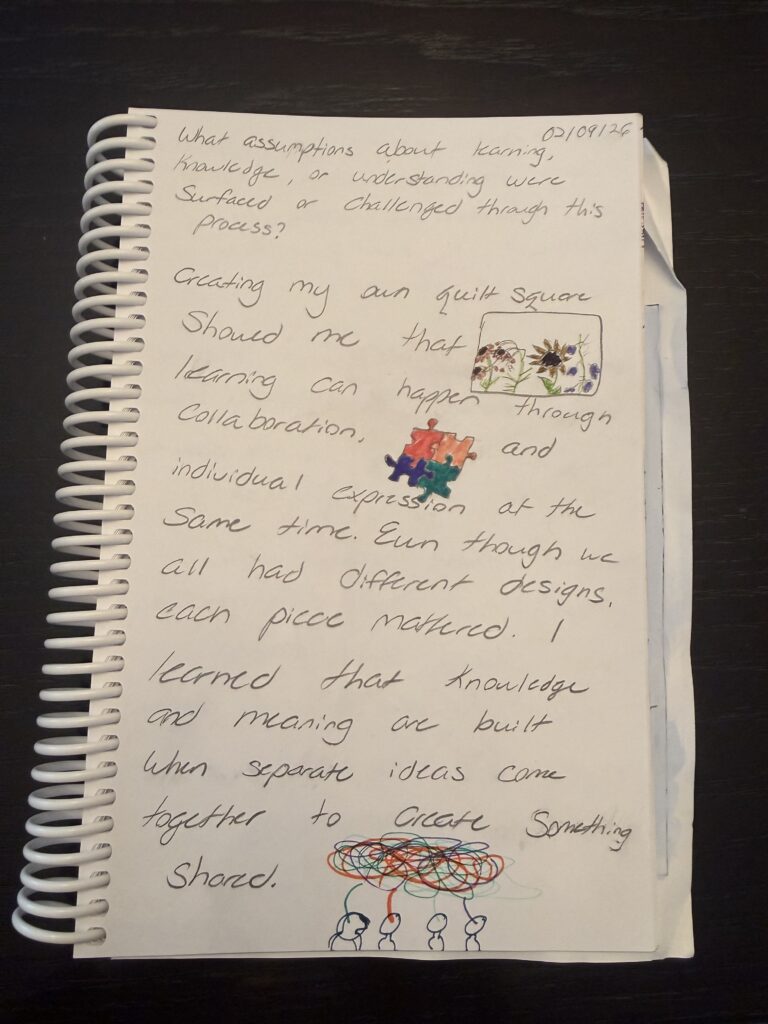 02/09/26
What assumptions about learning,
Knowledge, or understanding were
Surfaced or challenged through this
process?
Creating my own quilt square
Showed me that
learning can happen through
Collaboration, and
individual expression at the
Same time. Even though we
all had different designs,
each piece mattered. I
learned that Knowledge
and meaning are built
when separate ideas come
together to create Something
Shared.